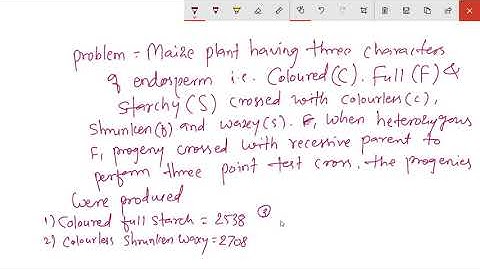 problem = Maize plant having three characters
of endosperm i.e. Coloured (C). Full (F) &
Starchy (S) crossed with colourless (c),
Shrunken (f) and waxey (s). F₁ When heterozygous
F₁ progeny crossed with recessive parent to
perform three point test cross, the progenies
were produced
1) Coloured full starch = 2538 ③
2) Colourless Shrunken waxy = 2708